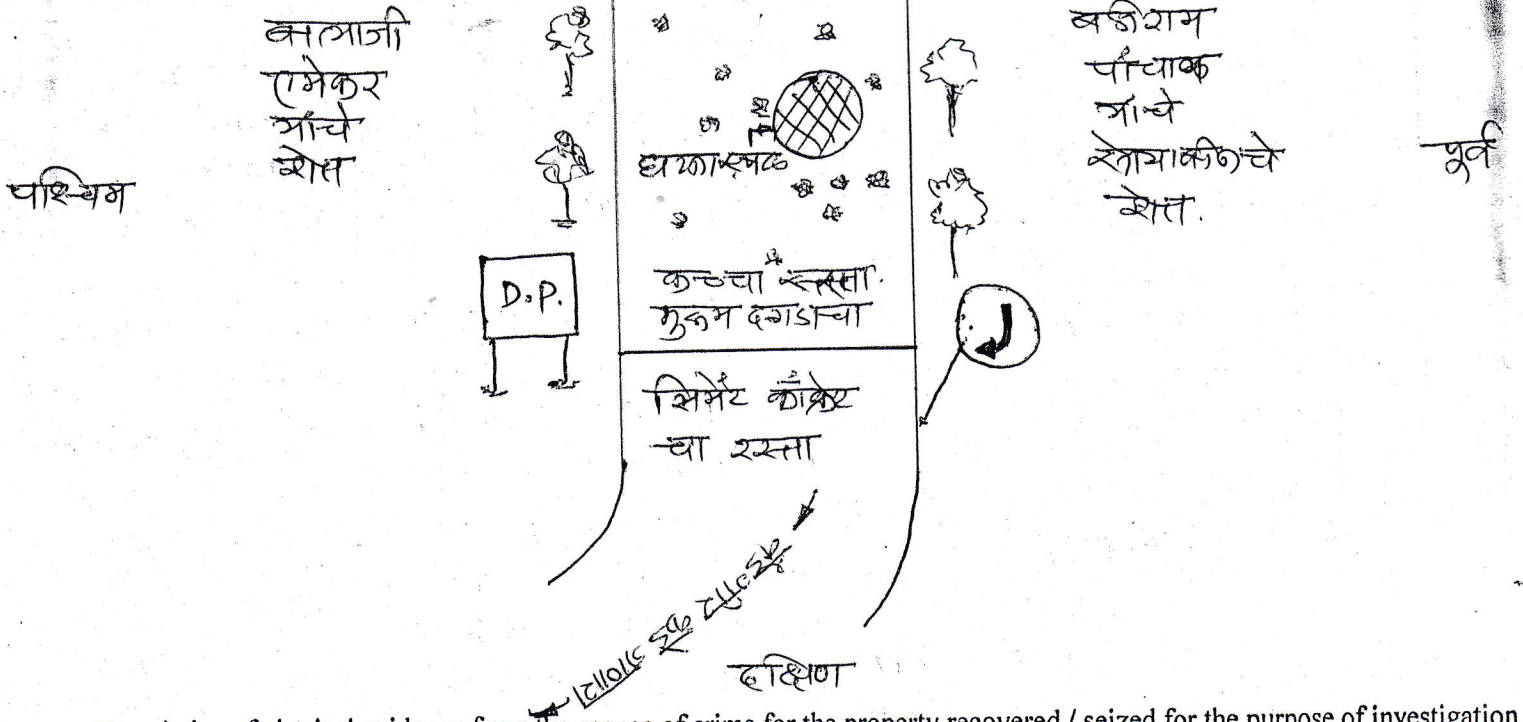 बालाजी
एमेकर
यांचे
शेत
पश्चिम
घटनास्थळ
कच्चा रस्ता.
मुरूम दगडाचा
सिमेंट काँक्रेट
चा रस्ता
D.P.
बळीराम
पांचाळ
यांचे
सोयाबीनचे
शेत.
पूर्व
दक्षिण
of crime for the property recovered / seized for the purpose of investigation